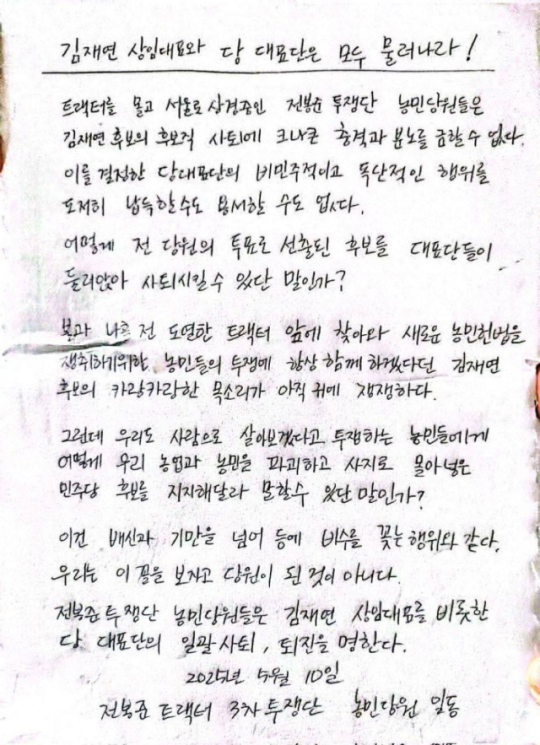 김재연 상임대표와 당 대표단은 모두 물러나라!
트랙터를 몰고 서울로 상경중인 전봉준 투쟁단 농민당원들은
김재연 후보의 후보직 사퇴에 크나큰 충격과 분노를 금할 수 없다.
이를 결정한 당대표단의 비민주적이고 독단적인 행위를
도저히 납득할수도 용서할 수도 없다.
어떻게 전 당원의 투표로 선출된 후보를 대표단들이
둘러앉아 사퇴시킬 수 있단 말인가?
불과 나흘 전 도열한 트랙터 앞에 찾아와 새로운 농민헌법을
쟁취하기위한 농민들의 투쟁에 항상 함께 하겠다던 김재연
후보의 카랑카랑한 목소리가 아직 귀에 쟁쟁하다.
그런데 우리도 사람으로 살아보겠다고 투쟁하는 농민들에게
어떻게 우리 농업과 농민을 파괴하고 사지로 몰아넣은
민주당 후보를 지지해달라 말할수 있단 말인가?
이건 배신과 기만을 넘어 등에 비수를 꽂는 행위와 같다.
우리는 이 꼴을 보자고 당원이 된 것이 아니다.
전봉준 투쟁단 농민당원들은 김재연 상임대표를 비롯한
당 대표단의 일괄사퇴, 퇴진을 명한다.
2025년 5월 10일
전봉준 트랙터 3차 투쟁단 농민당원 일동